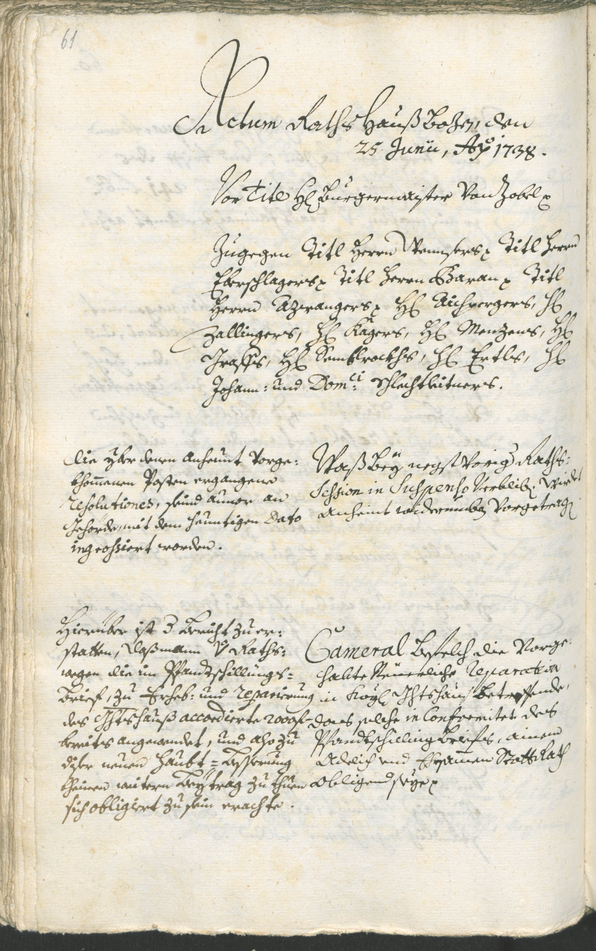 61
Actum Raths Hauß Bozen, den
25 Junii, Aõ 1738.
Vor Titl H: Burgermaister von Zobel
Zuegegen Titl Herrn Titl Herrn
Eberschlagers, Titl Herrn Titl
Herrn Azwangers, H: Aichpergers, H:
Zallingers, H: Kagers, H: Menzens, H:
Grasss, H: H: Ertls, H:
Johann: und Dom: Schlechtleitners.
Die yber denen anheunt vorge:
khomenen Posten ergangene
Resolutiones, seind an
gehörde, mit dem heuntigen Dato
worden.
Waß bey negst vorig Raths:
Session in Suspenso verblib, wirdt
anheint widerumben vorgetragen
Hierüber ist d Bericht zu er:
statten, daßmann Raths:
wegen die im Pfandtschillings:
Brief, zu Erheb: und reparierung
des Ambtshauß accordierte 2000 f
bereits angewendet, und also zu
diser neuen Haubt=Besserung
kheinen weitern Beytrag zu thuen
sich obligiert zu sein erachte.
Cameral Befelch die vorge:
reparation
in Kögl: Ambtshauß betreffende,
daß solche in Conformitet des
Pfandtschilling Briefs, einem
Adelich und Ersamen Statt Rath
obligend seye